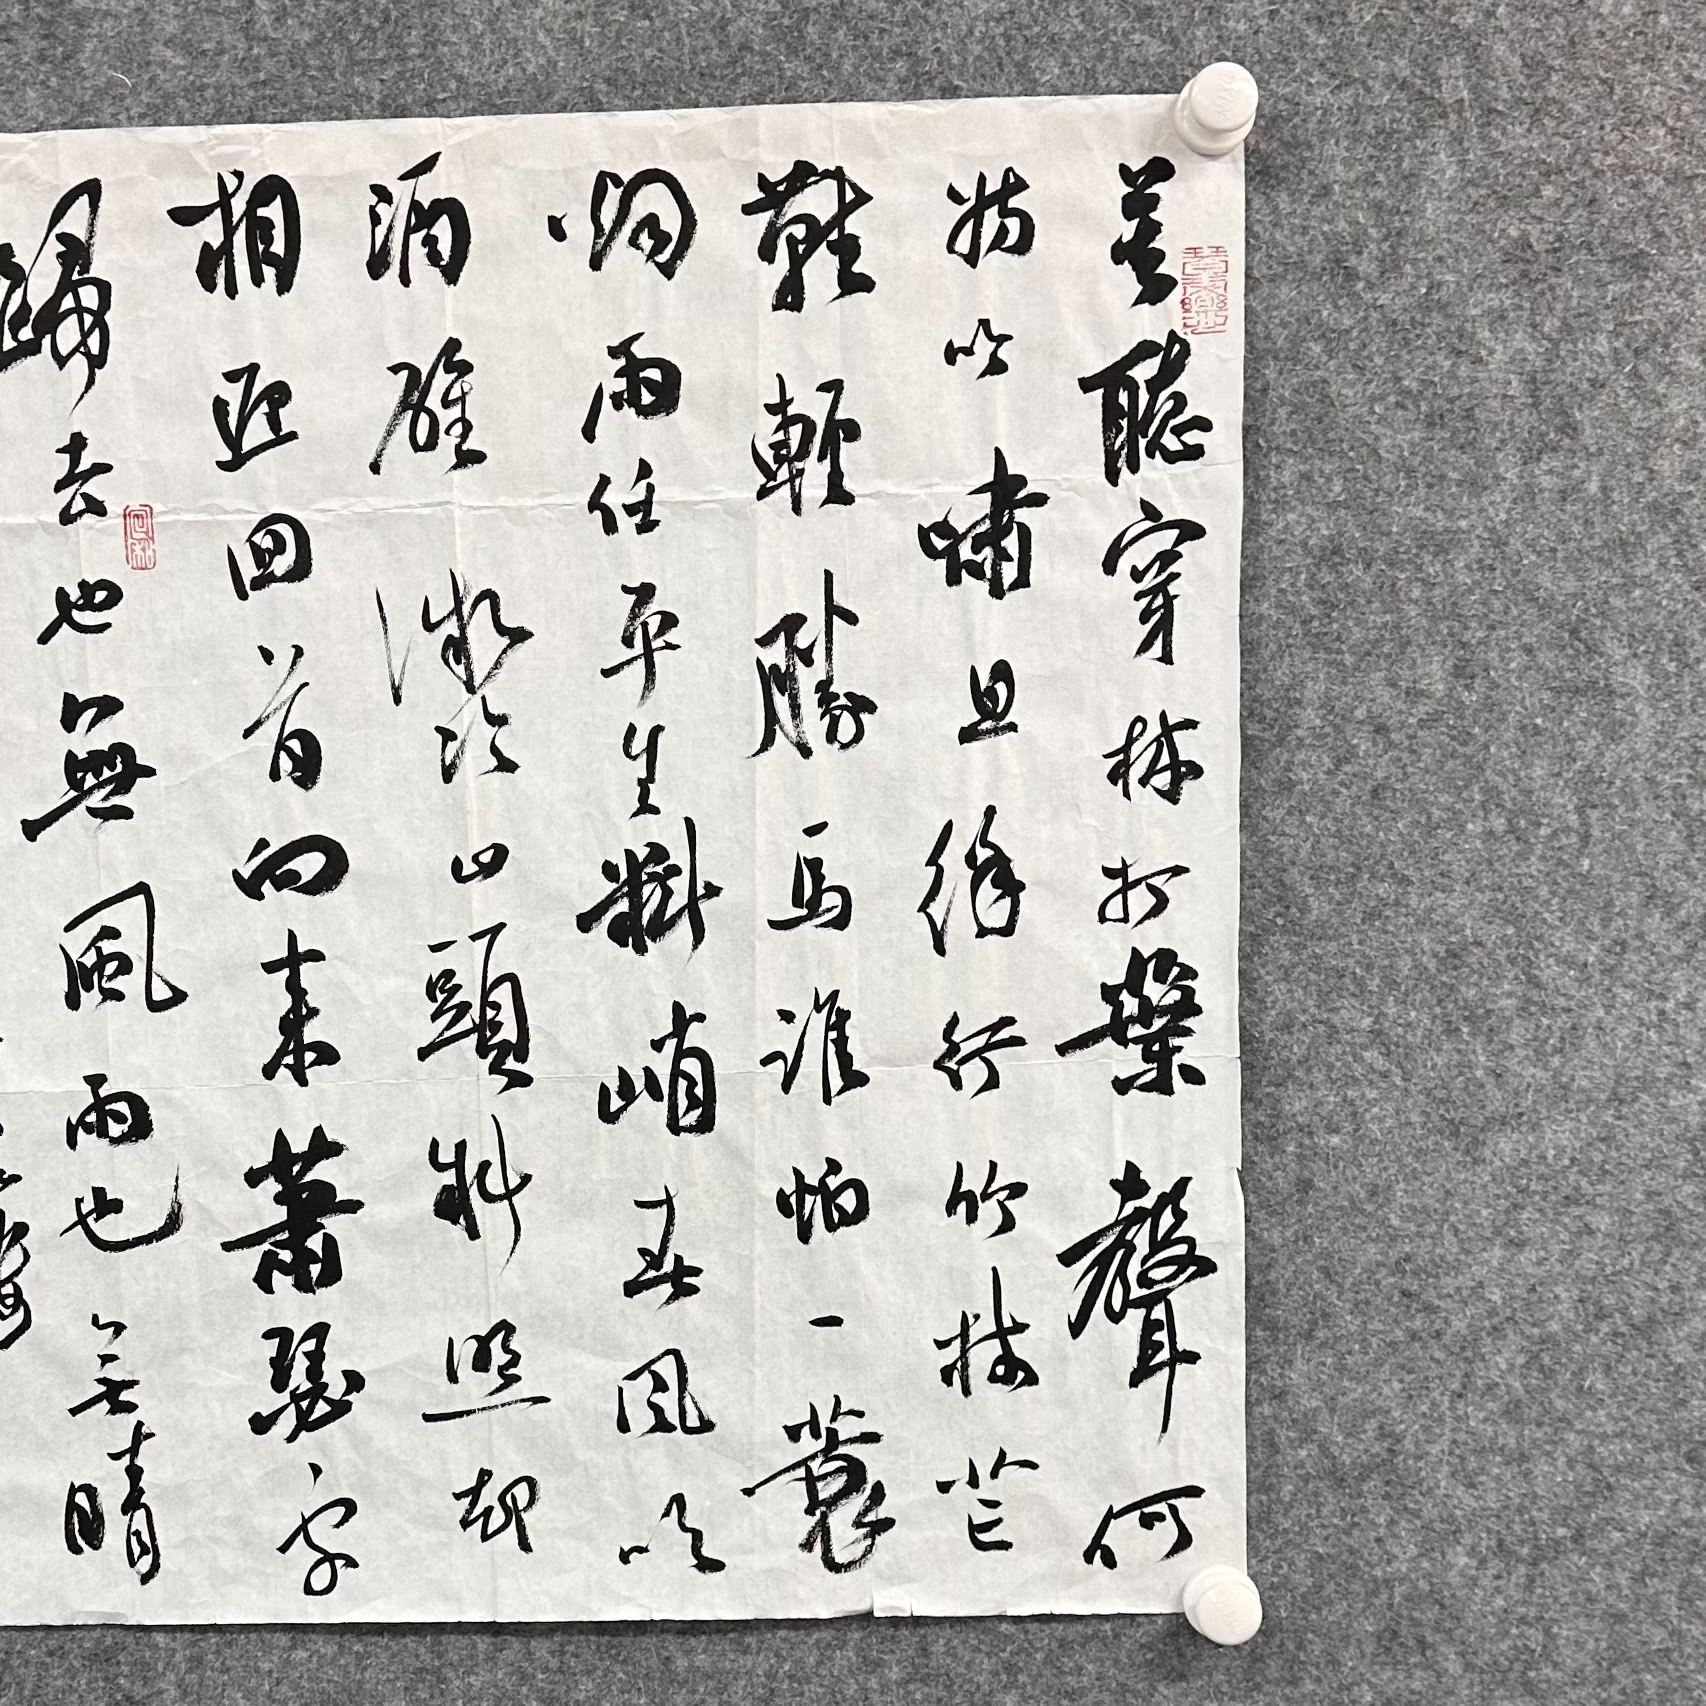 莫聽穿林打葉聲何
妨吟嘯且徐行竹杖芒
鞋輕勝馬誰怕一蓑
烟雨任平生料峭春風吹
酒醒微冷山頭斜照却
相迎回首向来蕭瑟處
歸去也無風雨也无晴